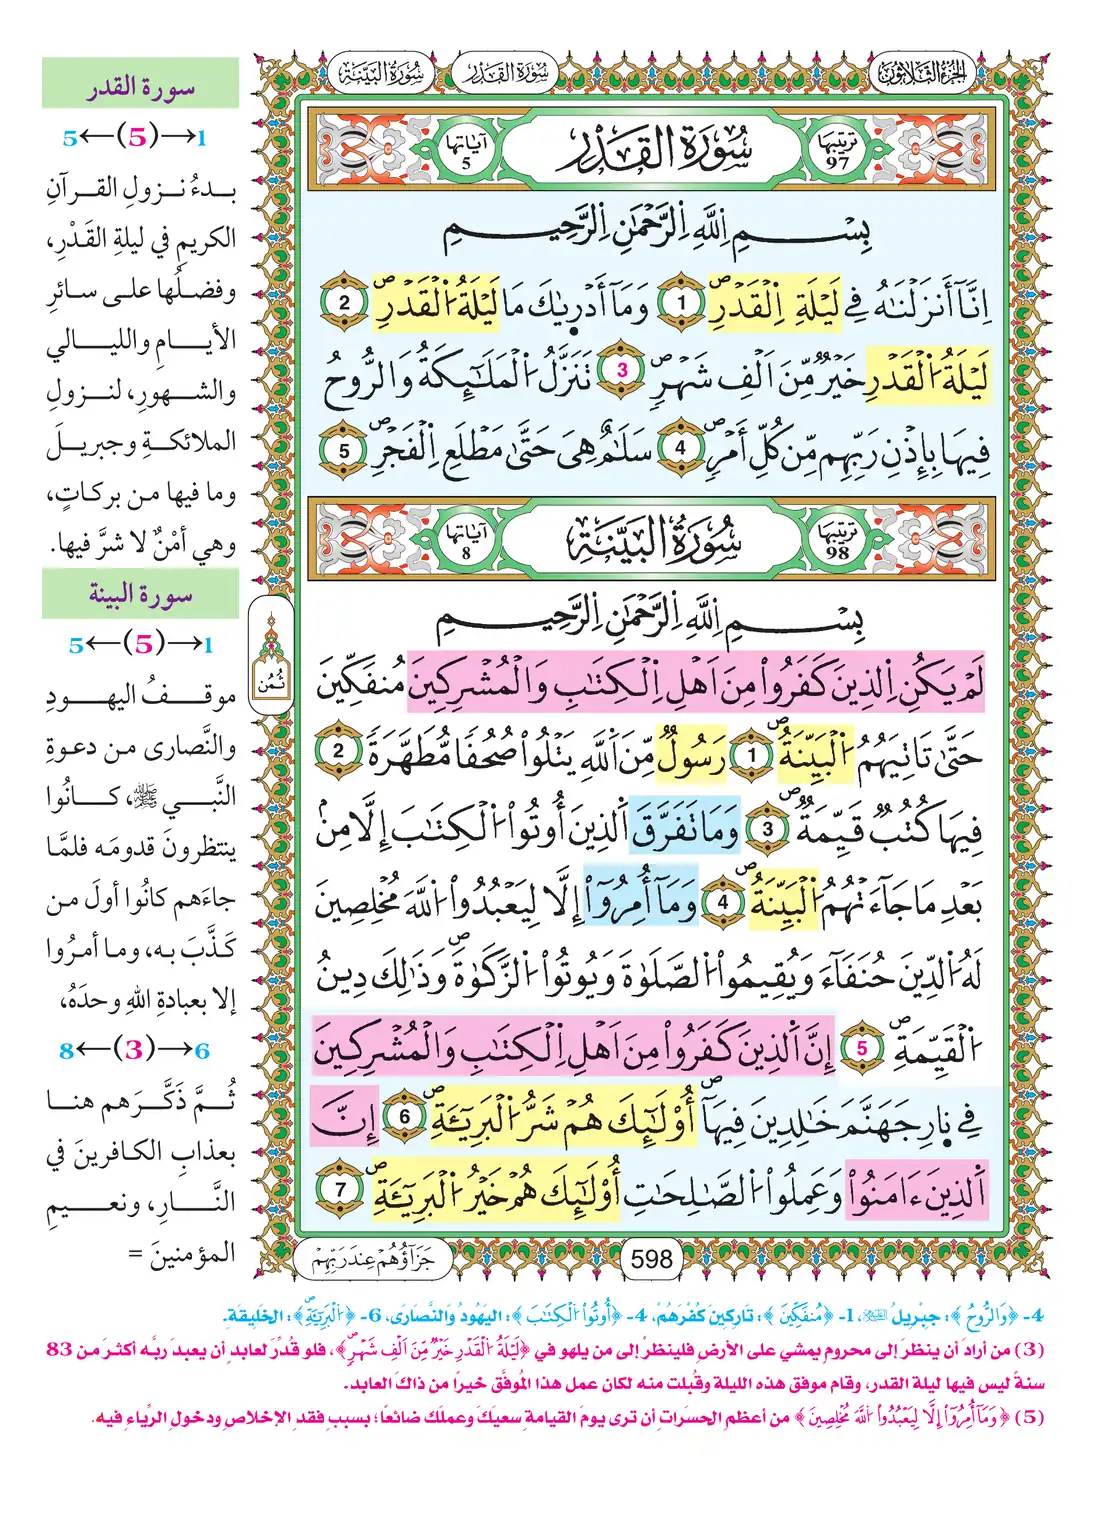 الجزء الثلاثون
سورة القدر
سورة البينة
ترتيبها 97
سُورَةُ القَدْر
آياتها 5
بِسْمِ اِ۬للَّهِ اِ۬لرَّحْمَٰنِ اِ۬لرَّحِيمِ
اِنَّآ أَنزَلْنَٰهُ فِے لَيْلَةِ اِ۬لْقَدْرِۖ 1 وَمَآ أَدْر۪ىٰكَ مَا لَيْلَةُ اُ۬لْقَدْرِۖ 2
لَيْلَةُ اُ۬لْقَدْرِ خَيْرٞ مِّنَ اَلْفِ شَهْرٖۖ 3 تَنَزَّلُ اُ۬لْمَلَٰٓئِكَةُ وَالرُّوحُ
فِيهَا بِإِذْنِ رَبِّهِم مِّن كُلِّ أَمْرٖۖ 4 سَلَٰمٌ هِيَ حَتَّىٰ مَطْلَعِ اِ۬لْفَجْرِۖ 5
ترتيبها 98
سُورَةُ البَيِّنَة
آياتها 8
بِسْمِ اِ۬للَّهِ اِ۬لرَّحْمَٰنِ اِ۬لرَّحِيمِ
لَمْ يَكُنِ اِ۬لذِينَ كَفَرُواْ مِنَ اَهْلِ اِ۬لْكِتَٰبِ وَالْمُشْرِكِينَ مُنفَكِّينَ
حَتَّىٰ تَاتِيَهُمُ اُ۬لْبَيِّنَةُۖ 1 رَسُولٞ مِّنَ اَ۬للَّهِ يَتْلُواْ صُحُفاٗ مُّطَهَّرَةٗ 2
فِيهَا كُتُبٞ قَيِّمَةٞۖ 3 وَمَا تَفَرَّقَ اَ۬لذِينَ أُوتُواْ اُ۬لْكِتَٰبَ إِلَّا مِنۢ
بَعْدِ مَا جَآءَتْهُمُ اُ۬لْبَيِّنَةُۖ 4 وَمَآ أُمِرُوٓاْ إِلَّا لِيَعْبُدُواْ اُ۬للَّهَ مُخْلِصِينَ
لَهُ اُ۬لدِّينَ حُنَفَآءَ وَيُقِيمُواْ اُ۬لصَّلَوٰةَ وَيُوتُواْ اُ۬لزَّكَوٰةَۖ وَذَٰلِكَ دِينُ
اُ۬لْقَيِّمَةِۖ 5 إِنَّ اَ۬لذِينَ كَفَرُواْ مِنَ اَهْلِ اِ۬لْكِتَٰبِ وَالْمُشْرِكِينَ
فِے نارِ جَهَنَّمَ خَٰلِدِينَ فِيهَآۖ أُوْلَٰٓئِكَ هُمْ شَرُّ اُ۬لْبَرِيٓـَٔةِۖ 6 إِنَّ
اَ۬لذِينَ ءَامَنُواْ وَعَمِلُواْ اُ۬لصَّٰلِحَٰتِ أُوْلَٰٓئِكَ هُمْ خَيْرُ اُ۬لْبَرِيٓـَٔةِۖ 7
ثُمُن
جَزَآؤُهُمْ عِندَ رَبِّهِمْ
598
سورة القدر
1→(5)←5
بدءُ نزولِ القرآنِ
الكريمِ في ليلةِ القَدْرِ،
وفضلُها على سائرِ
الأيامِ والليالي
والشهورِ، لنزولِ
الملائكةِ وجبريلَ
وما فيها من بركاتٍ،
وهي أمْنٌ لا شرَّ فيها.
سورة البينة
1→(5)←5
موقفُ اليهودِ
والنَّصارى من دعوةِ
النَّبي ﷺ، كانُوا
ينتظرونَ قدومَه فلمَّا
جاءَهم كانُوا أولَ من
كَذَّبَ به، وما أمرُوا
إلا بعبادةِ اللهِ وحدَهُ،
6→(3)←8
ثُمَّ ذَكَّرَهم هنا
بعذابِ الكافرينَ في
النَّارِ، ونعيمِ
المؤمنينَ =
4- ﴿وَالرُّوحُ﴾: جبريلُ، 1- ﴿مُنفَكِّينَ﴾: تاركينَ كفرَهُمْ، 4- ﴿أُوتُواْ اُ۬لْكِتَٰبَ﴾: اليهودُ والنَّصارى، 6- ﴿اُ۬لْبَرِيَّةِۖ﴾: الخليقةِ.
(3) من أرادَ أن ينظرَ إلى محرومٍ يمشي على الأرضِ فلينظرْ إلى من يلهو في ﴿لَيْلَةُ اُ۬لْقَدْرِ خَيْرٞ مِّنَ اَلْفِ شَهْرٖۖ﴾، فلو قُدِّرَ لعابدٍ أن يعبدَ ربَّه أكثرَ من 83
سنةً ليس فيها ليلة القدرِ، وقام موفق هذه الليلة وقُبلت منه لكان عمل هذا المُوفَّق خيرًا من ذاكَ العابد.
(5) ﴿وَمَآ أُمِرُوٓاْ إِلَّا لِيَعْبُدُواْ اُ۬للَّهَ مُخْلِصِينَ﴾ من أعظمِ الحسَراتِ أن ترى يومَ القيامةِ سعيَكَ وعملَك ضائعًا؛ بسببِ فقدِ الإخلاصِ ودخولِ الرِّياءِ فيه.